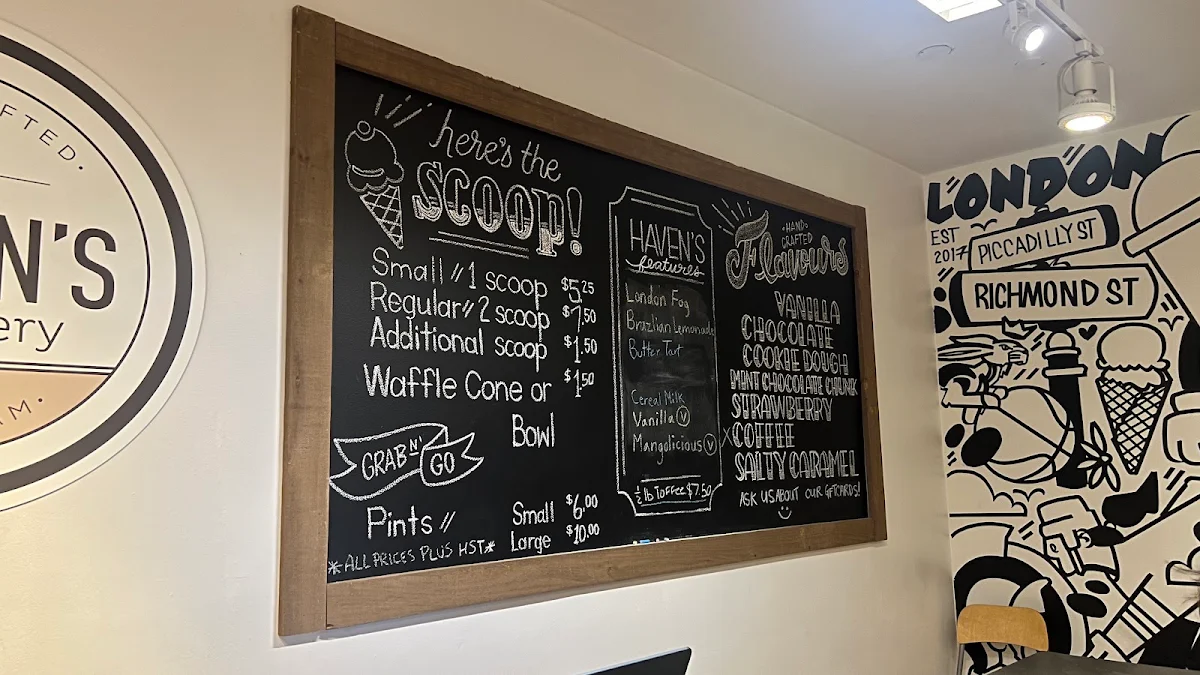 FTED.
N'S
ery
AM.
here's the
SCOOP!
Small // 1 scoop $5.25
Regular // 2 scoop $7.50
Additional scoop $1.50
Waffle Cone or $1.50
Bowl
GRAB N' GO
Pints // Small $6.00
Large $10.00
*ALL PRICES PLUS HST*
HAVEN'S
features
London Fog
Brazilian Lemonade
Butter Tart
Cereal Milk
Vanilla V
Mangolicious V
1/2 lb Toffee $7.50
HAND
CRAFTED
Flavours
VANILLA
CHOCOLATE
COOKIE DOUGH
MINT CHOCOLATE CHUNK
STRAWBERRY
X COFFEE
SALTY CARAMEL
ASK US ABOUT OUR GIFTCARDS!
LONDON
EST
2017
PICCADILLY ST
RICHMOND ST